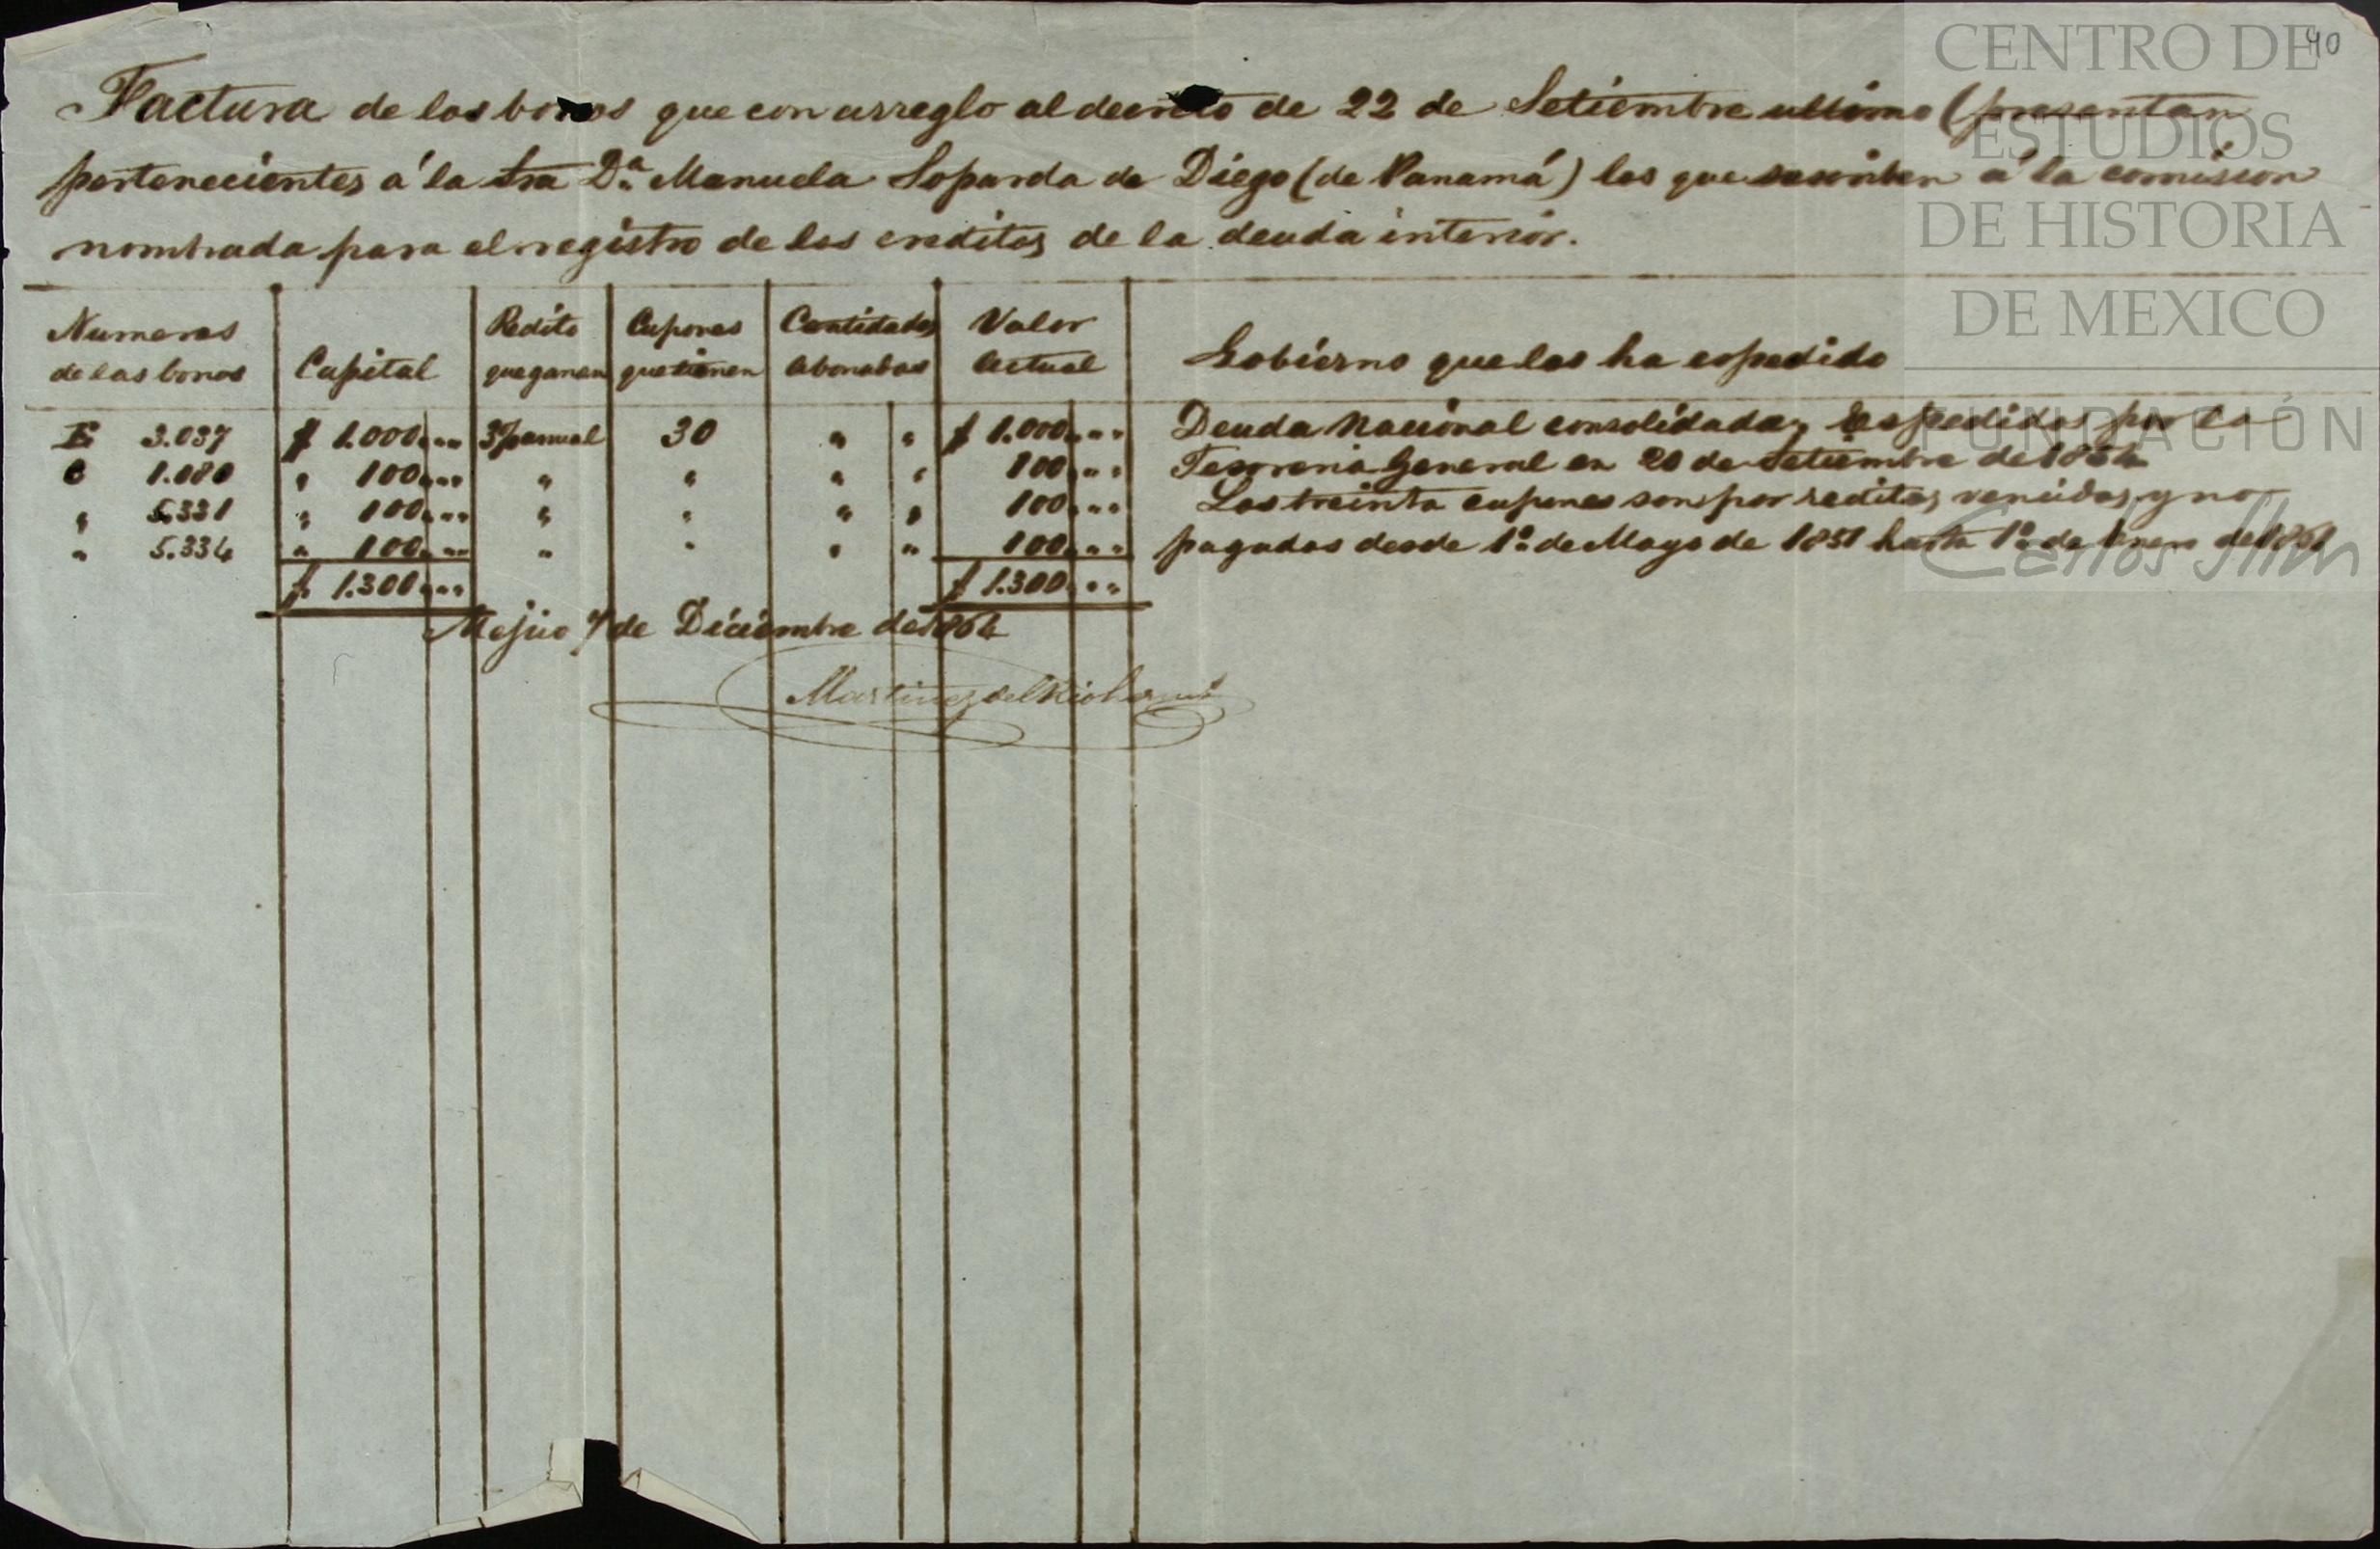 90
Factura de los bonos que con arreglo al decreto de 22 de Setiembre ultimo (presentan
pertenecientes á la Sra Dª Manuela de Diego (de Panamá) los que suscriben á la comision
nombrada para el registro de los creditos de la deuda interior.
Numeros de los bonos | Capital | Redito que ganan | Cupones que tienen | Cantidades abonadas | Valor actual | Gobierno que los ha espedido
E 3.037 | $ 1.000 " " | 3% anual | 30 | " " | $ 1.000 " " | Deuda Nacional consolidada, espedidos por la
C 1.080 | " 100 " " | " | " | " " | 100 " " | Tesoreria General en 20 de Setiembre de
" 5.331 | " 100 " " | " | " | " " | 100 " " | Los treinta cupones son por reditos vencidos y no
" 5.334 | " 100 " " | " | " | " " | 100 " " | pagados desde 1º de Mayo de 1851 hasta 1º de Enero de
$ 1.300 " " | $ 1.300 " "
Mejico 7 de Diciembre de 1864
Martinez del Rio herms
CENTRO DE
ESTUDIOS
DE HISTORIA
DE MEXICO
FUNDACIÓN
Carlos Slim